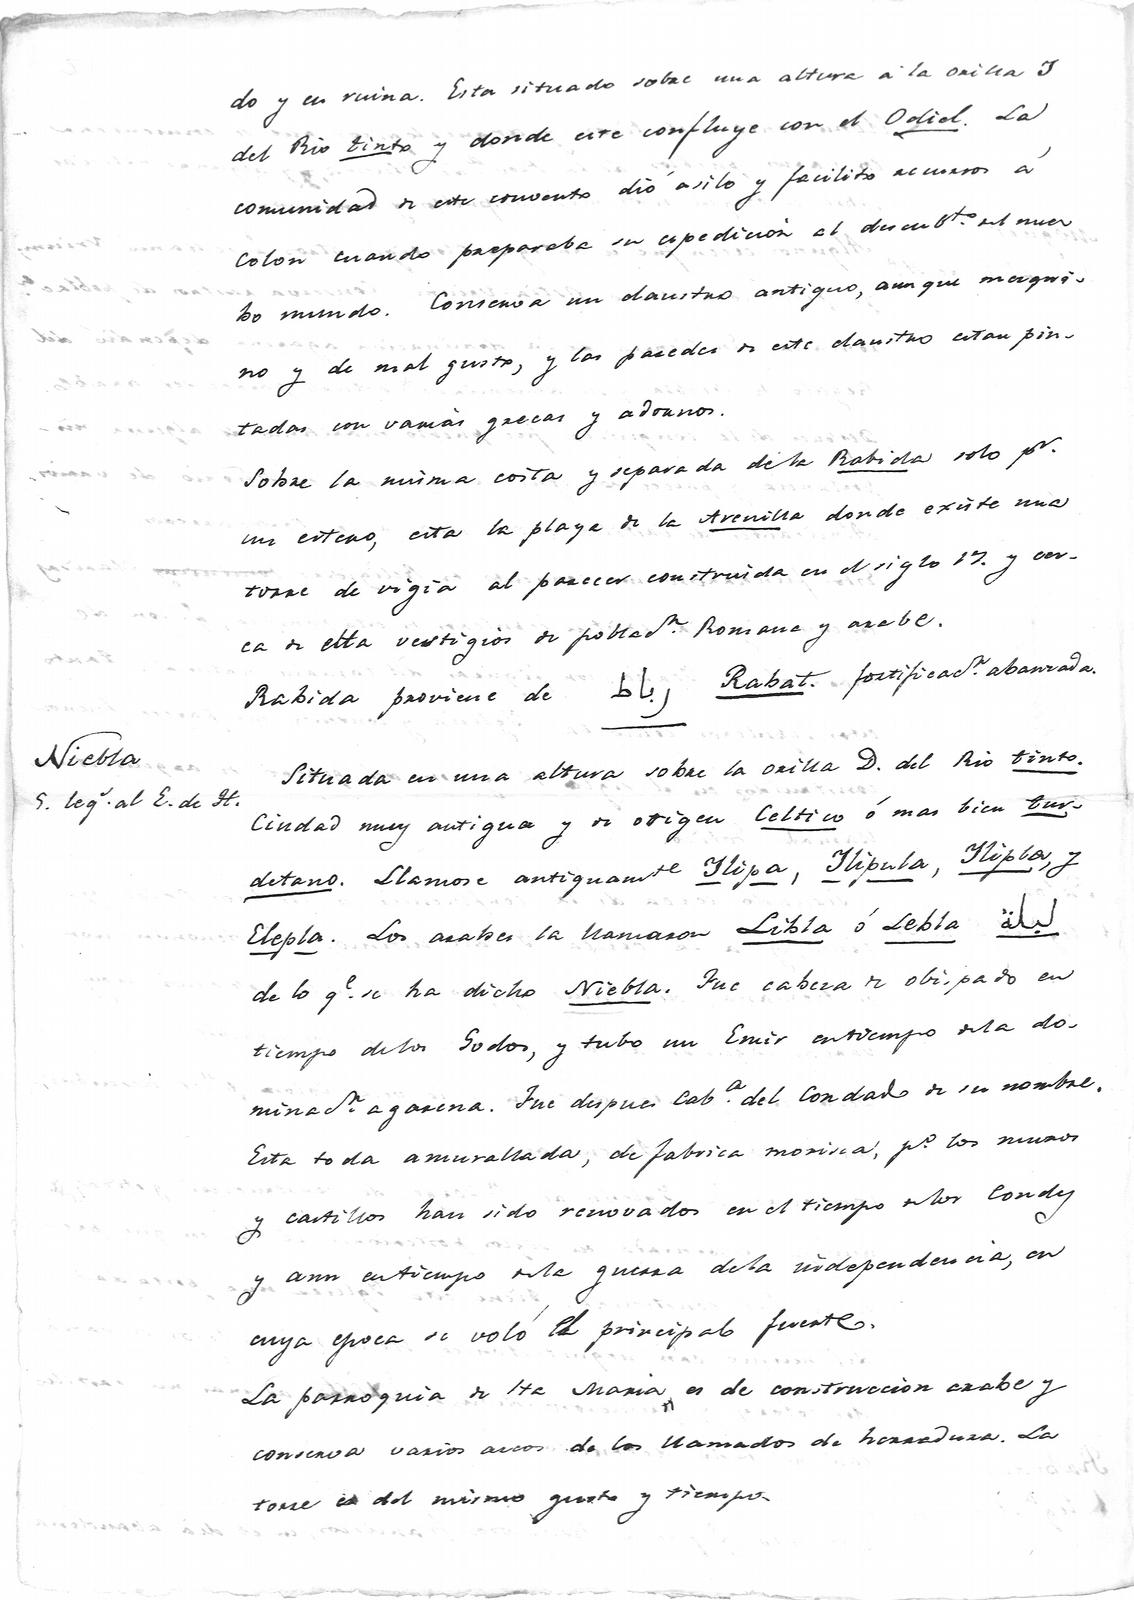 do y en ruina. Esta situado sobre una altura á la orilla I
del Rio tinto y donde este confluye con el Odiel. La
comunidad de este convento dió asilo y facilito recursos á
Colon cuando preparaba su espedición al descubto. del nuer
bo mundo. Conserva un claustro antiguo, aunque mezqui-
no y de mal gusto, y las paredes de este claustro estan pin-
tadas con varias grecas y adornos.
Sobre la misma costa y separada de la Rabida solo pr.
un estero, esta la playa de la Arenilla donde existe una
torre de vigia al parecer construida en el siglo 17. y cer-
ca de ella vestigios de poblacn. Romana y arabe.
Rabida proviene de رباط Rabat. fortificacn. abanzada.
Niebla
5. legs. al E. de H.
Situada en una altura sobre la orilla D. del Rio tinto.
Ciudad muy antigua y de origen Celtico ó mas bien tur-
detano. Llamose antiguamte Ilipa, Ilipula, Ilipla, y
Elepla. Los arabes la llamaron Libla ó Lebla لبلة
de lo qe. se ha dicho Niebla. Fue cabeza de obispado en
tiempo delos Godos, y tubo un Emir en tiempo dela do-
minacn. agarena. Fue despues Caba. del Condado de su nombre.
Esta toda amurallada, de fabrica morisca, po. los muros
y castillos han sido renovados en el tiempo delos Condes
y aun en tiempo dela guerra dela independencia, en
cuya epoca se voló el principal fuerte.
La parroquia de Sta Maria es de construccion arabe y
conserva varios arcos de los llamados de herradura. La
torre es del mismo gusto y tiempo.